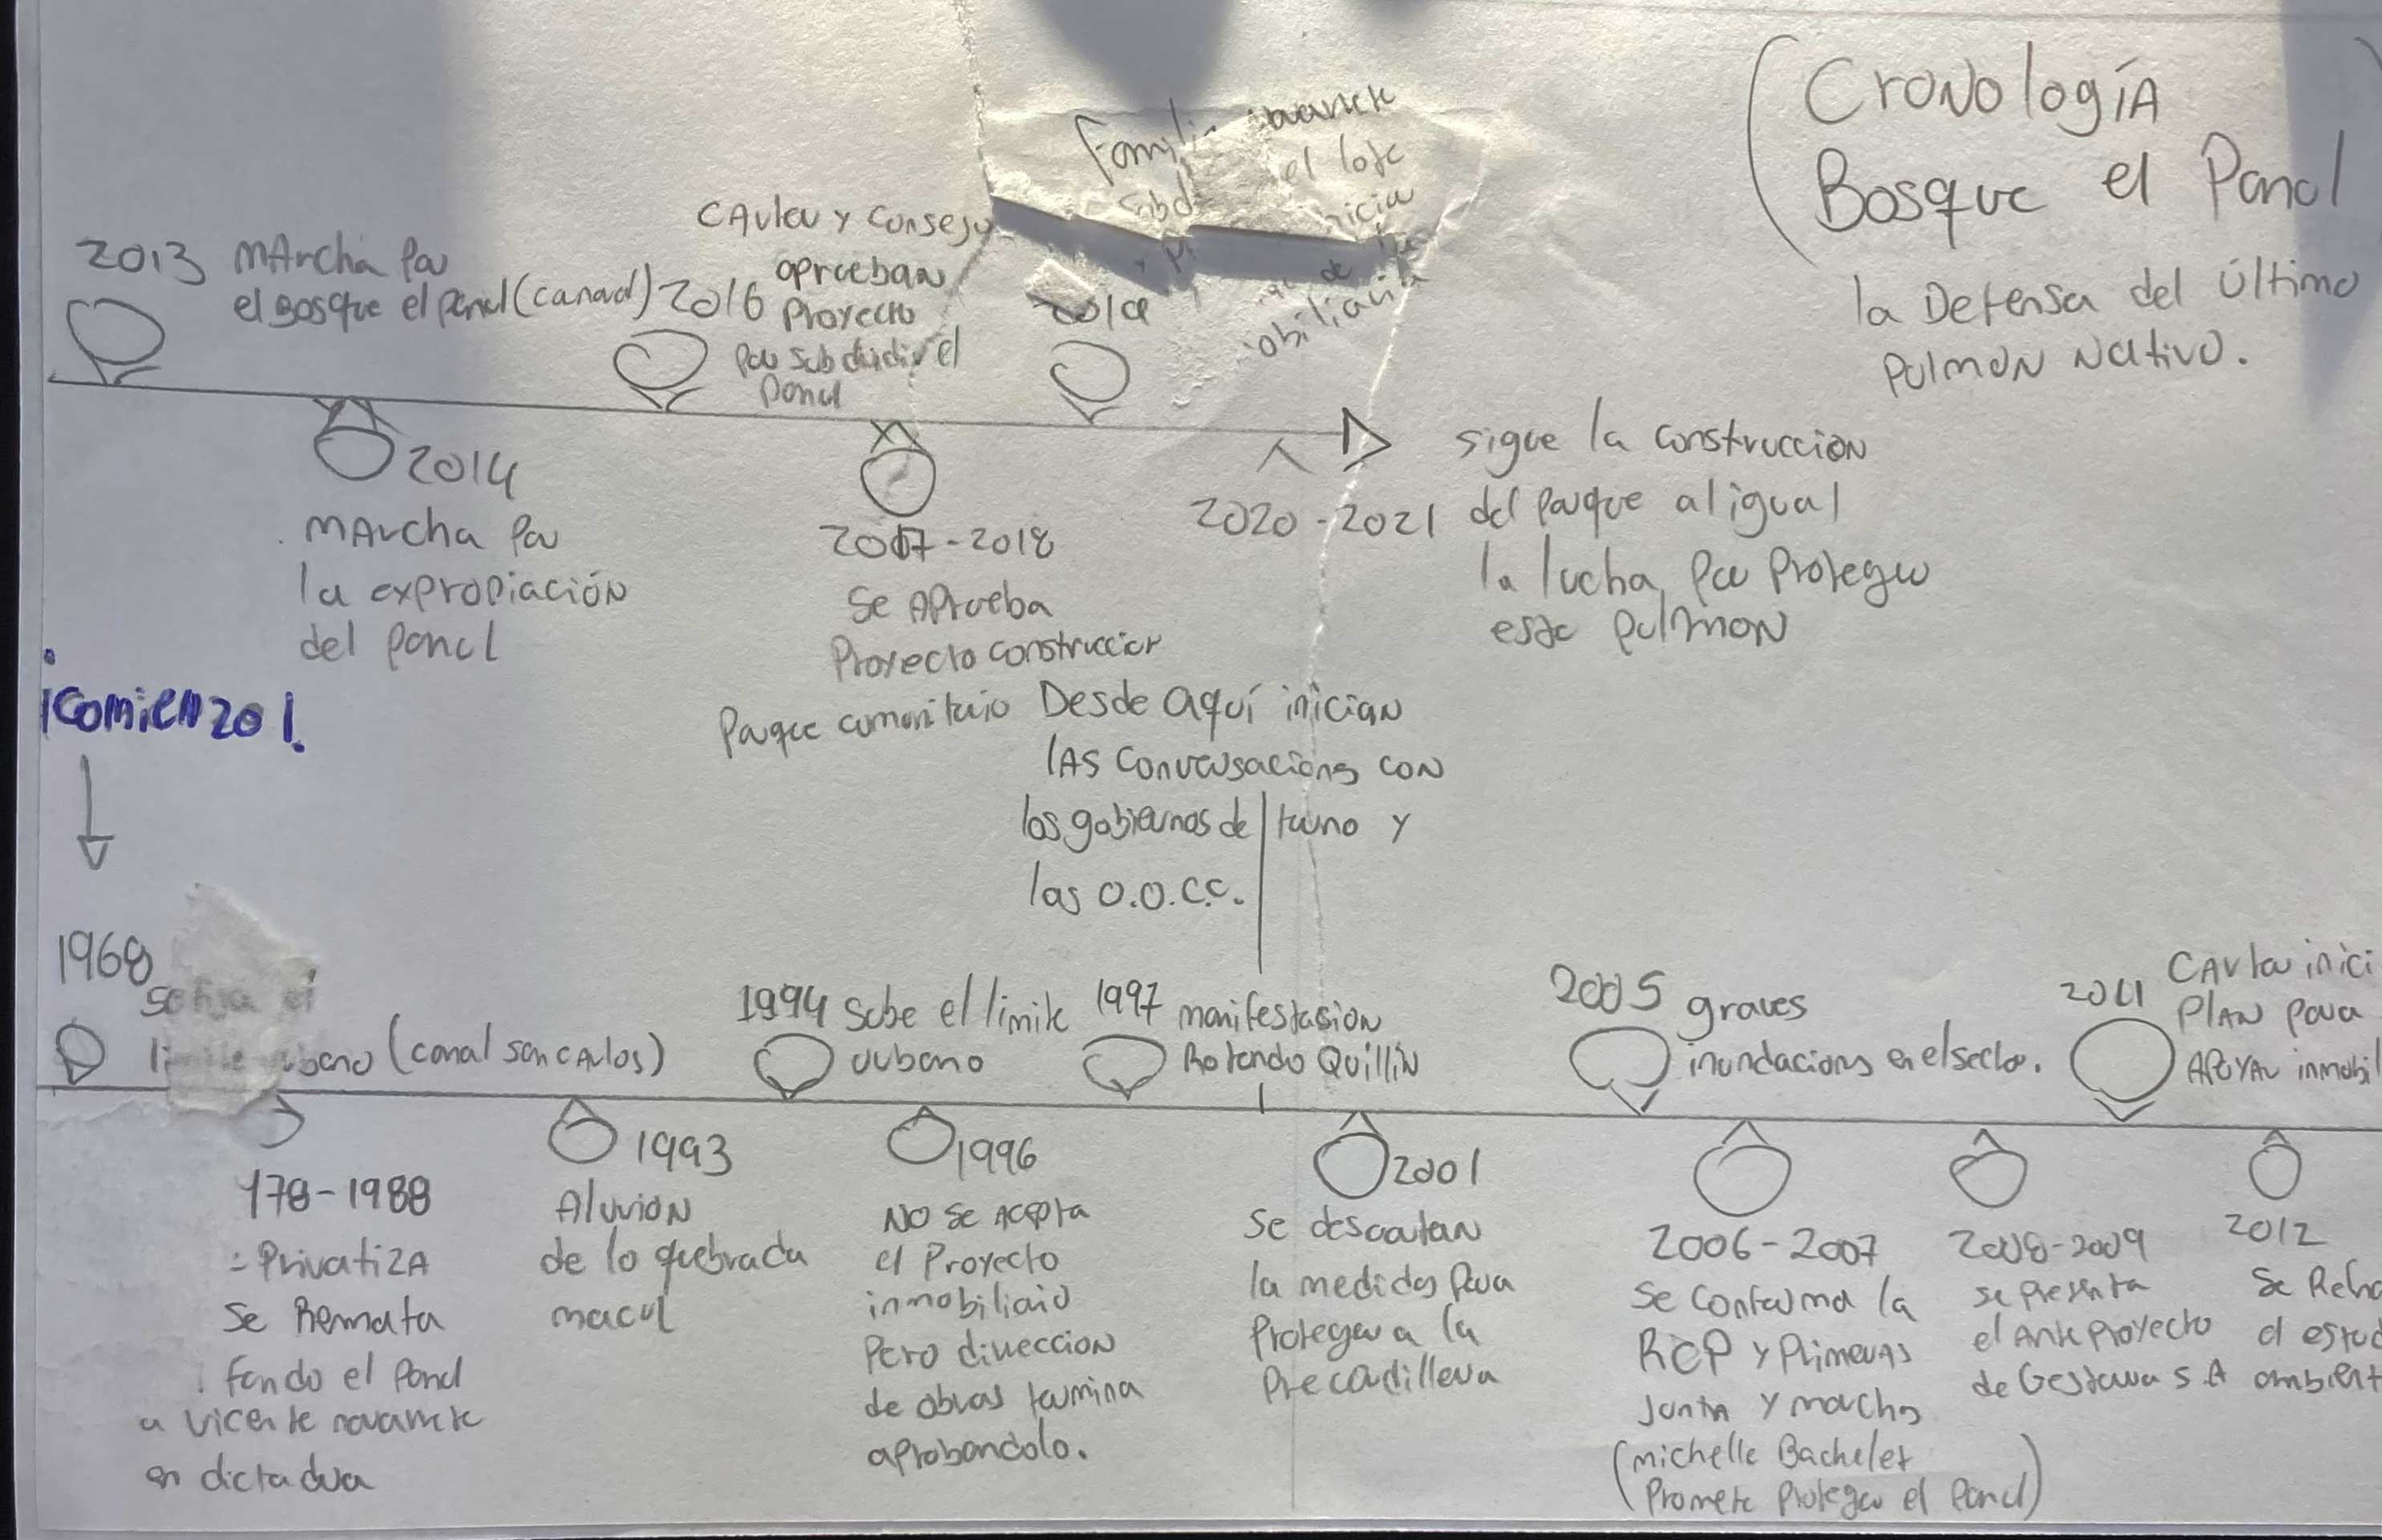 Cronología
Bosque el Panel
la Defensa del Último
Pulmón Nativo.
2013 Marcha por
el Bosque el panel (canaal)
2014
Marcha por
la expropiación
del Panel
2016
Carter y Consejo
aprueban
Proyecto
por subdividir el
Panel
2017-2018
Se Aprueba
Proyecto construccion
Parque comunitario
2019
el lote
2020-2021
sigue la construccion
del parque al igual
la lucha por Proteger
este pulmon
¡Comienzo!
Desde aquí inician
las conversaciones con
los gobiernos de turno y
las O.O.C.C.
1968
se fija el
(canal san carlos)
178-1988
Privatiza
Se Remata
fondo el Panel
a Vicente navarrete
en dictadura
1993
Aluvion
de lo quebrada
macul
1994 Sube el limite
urbano
1996
No se acepta
el Proyecto
inmobiliario
Pero direccion
de obras termina
aprobandolo.
1997 manifestasion
Rotondo Quillín
2001
se descartan
la medidas para
Proteger a la
Precordillera
2005 graves
inundacions en el sector.
2006-2007
Se conforma la
RCP y Primeras
Junta y marchas
(michelle Bachelet
Promete Proteger el Panel)
2008-2009
se presenta
el Anteproyecto
de Gesterra S A
2011 Carter inici
Plan para
Apoyar inmobil
2012
Se Reha
el estud
ambient